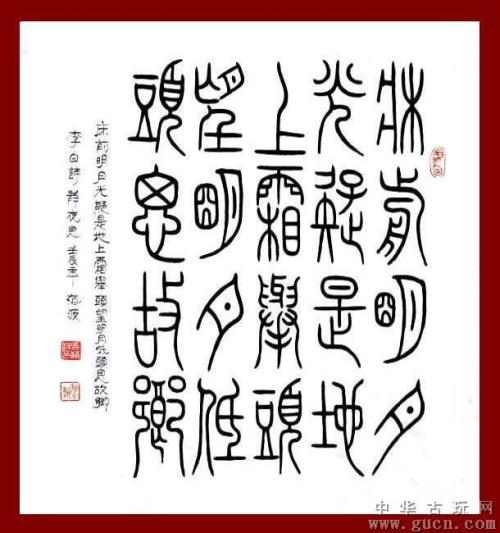 牀前明月
光疑是地
上霜舉頭
望明月低
頭思故鄉
床前明月光疑是地上霜舉頭望明月低頭思故鄉
李白詩靜夜思 壬辰年
中华古玩网
www.gucn.com